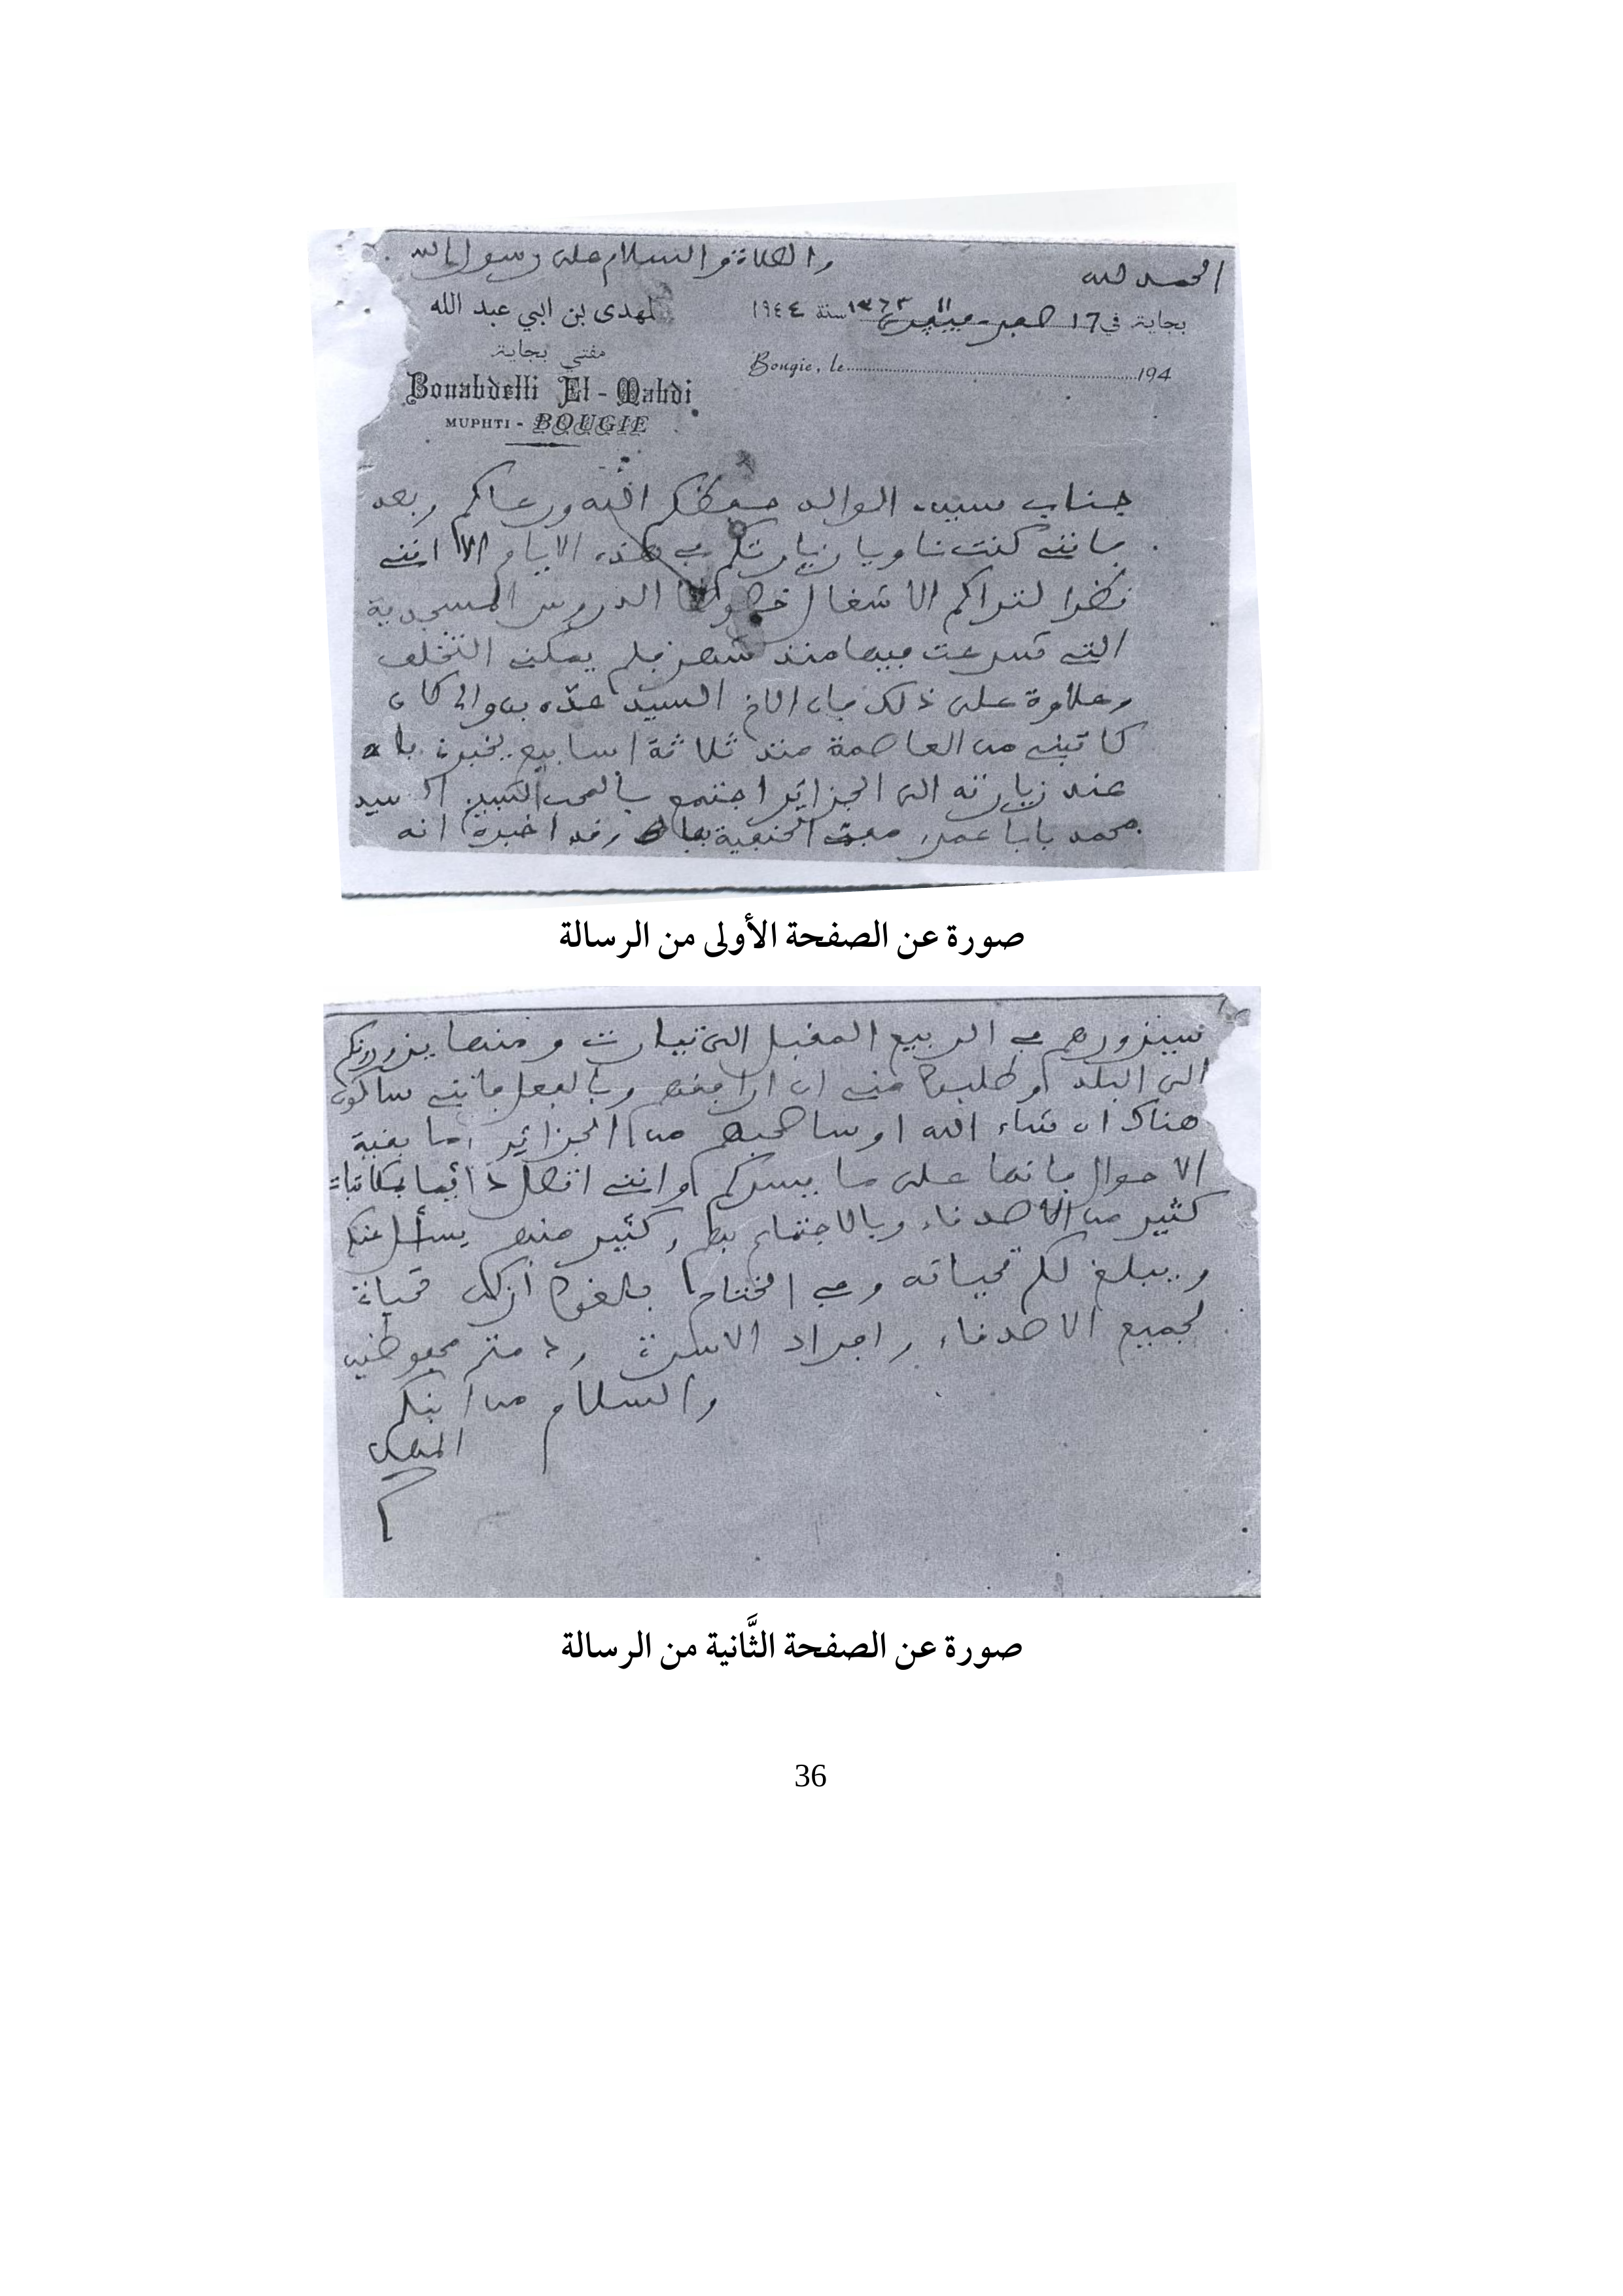 الحمد لله والصلاة والسلام على رسول الله
بجاية في 17 صفر 1363 11 فيفري سنة ١٩٤٤
المهدي بن ابي عبد الله
مفتي بجاية
Bougie, le 194
Bouabdelli El-Mahdi
MUPHTI - BOUGIE
جناب سيدي الوالد حفظكم الله ورعاكم وبعد
فانني كنت ناويا زيارتكم في هذه الايام الا انني
نظرا لتراكم الاشغال خصوصا الدروس المسجدية
التي شرعت فيها منذ شهر فلم يمكني التخلف
وعلاوة على ذلك فان الاخ السيد عدّه بن والي كان
كاتبني من العاصمة منذ ثلاثة اسابيع يخبرني بانه
عند زيارته الى الجزائر اجتمع بالمحب السيد
محمد بابا عمر مفتي الحنفية بها وقد اخبره انه
صورة عن الصفحة الأولى من الرسالة
سيزورهم في الربيع المقبل الى تيارت ومنها يزورونكم
الى البلد وطلبوا مني ان ارافقهم وبالفعل فانني ساكون
هناك ان شاء الله او ساصحبهم من الجزائر اما بقية
الاحوال فانها على ما يسركم وانني اتصل دائما بمكاتبات
كثير من الاصدقاء وبالاجتماع بهم وكثير منهم يسأل عنكم
ويبلغ لكم تحياته وفي الختام بلغوا أزكى تحياتي
لجميع الاصدقاء وافراد الاسرة ودمتم محفوظين
والسلام من ابنكم
المهدي
صورة عن الصفحة الثَّانية من الرسالة
36